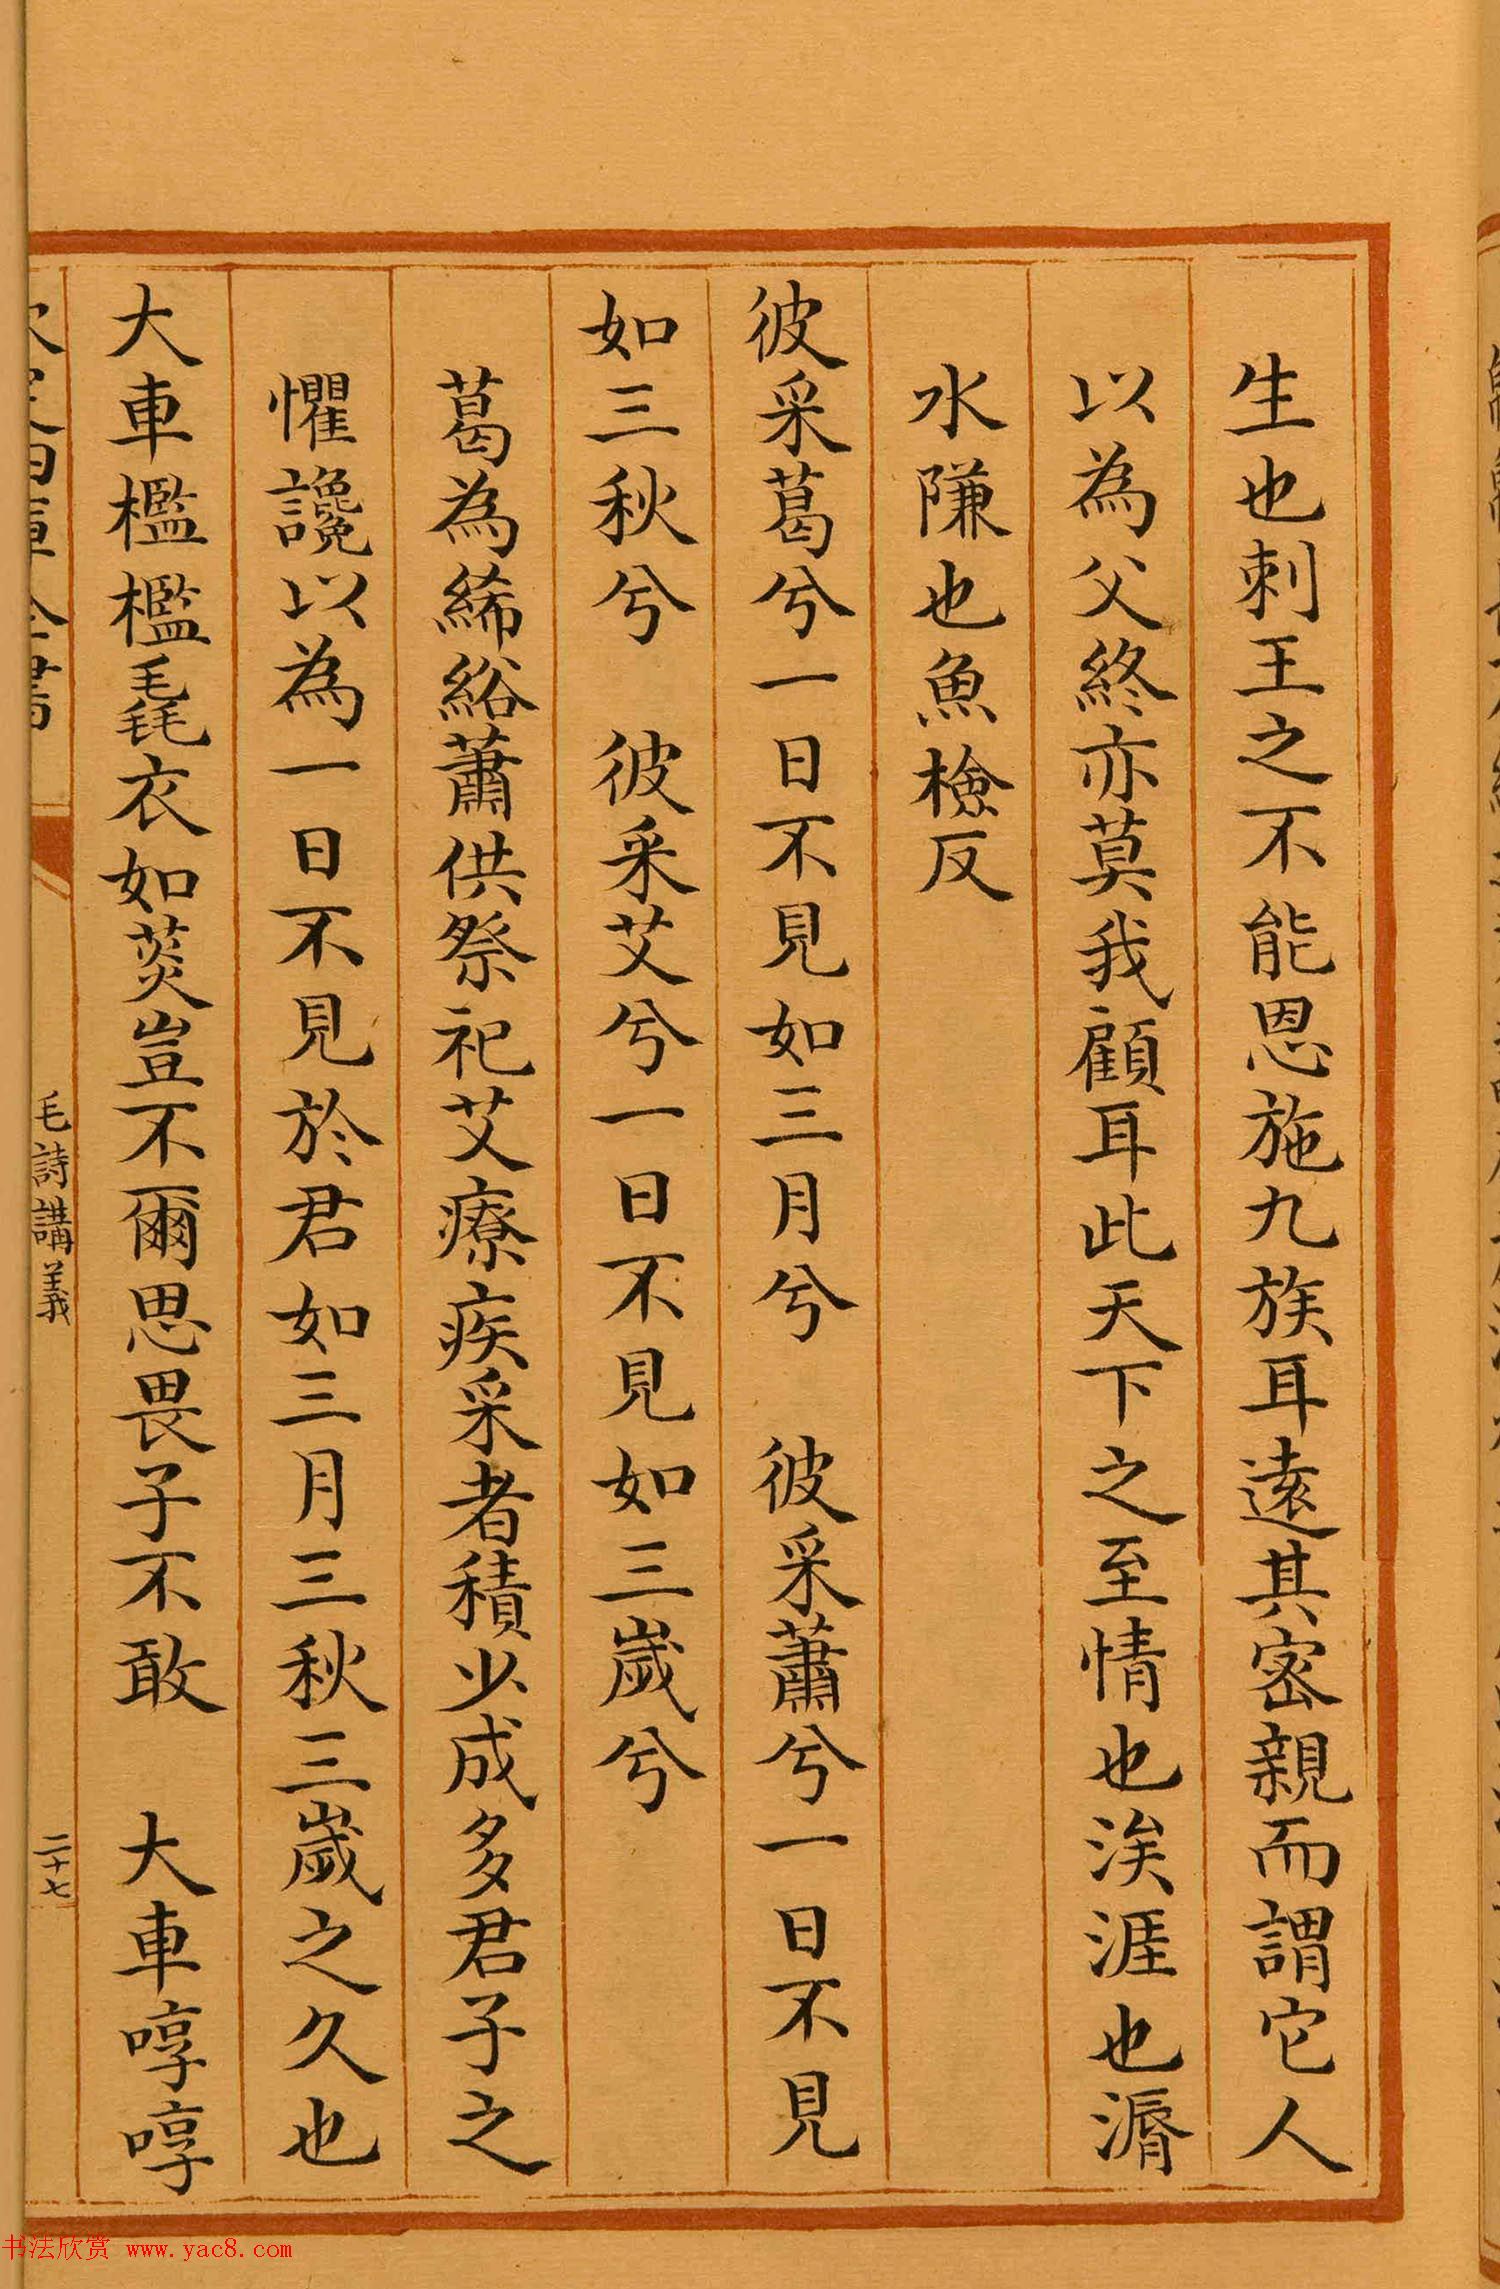 生也刺王之不能恩施九族耳遠其密親而謂它人
以為父終亦莫我顧耳此天下之至情也涘涯也漘
水隒也魚檢反
彼采葛兮一日不見如三月兮　彼采蕭兮一日不見
如三秋兮　彼采艾兮一日不見如三歲兮
葛為絺綌蕭供祭祀艾療疾采者積少成多君子之
懼讒以為一日不見於君如三月三秋三歲之久也
大車檻檻毳衣如菼豈不爾思畏子不敢　大車啍啍
毛詩講義
二十七
书法欣赏 www.yac8.com